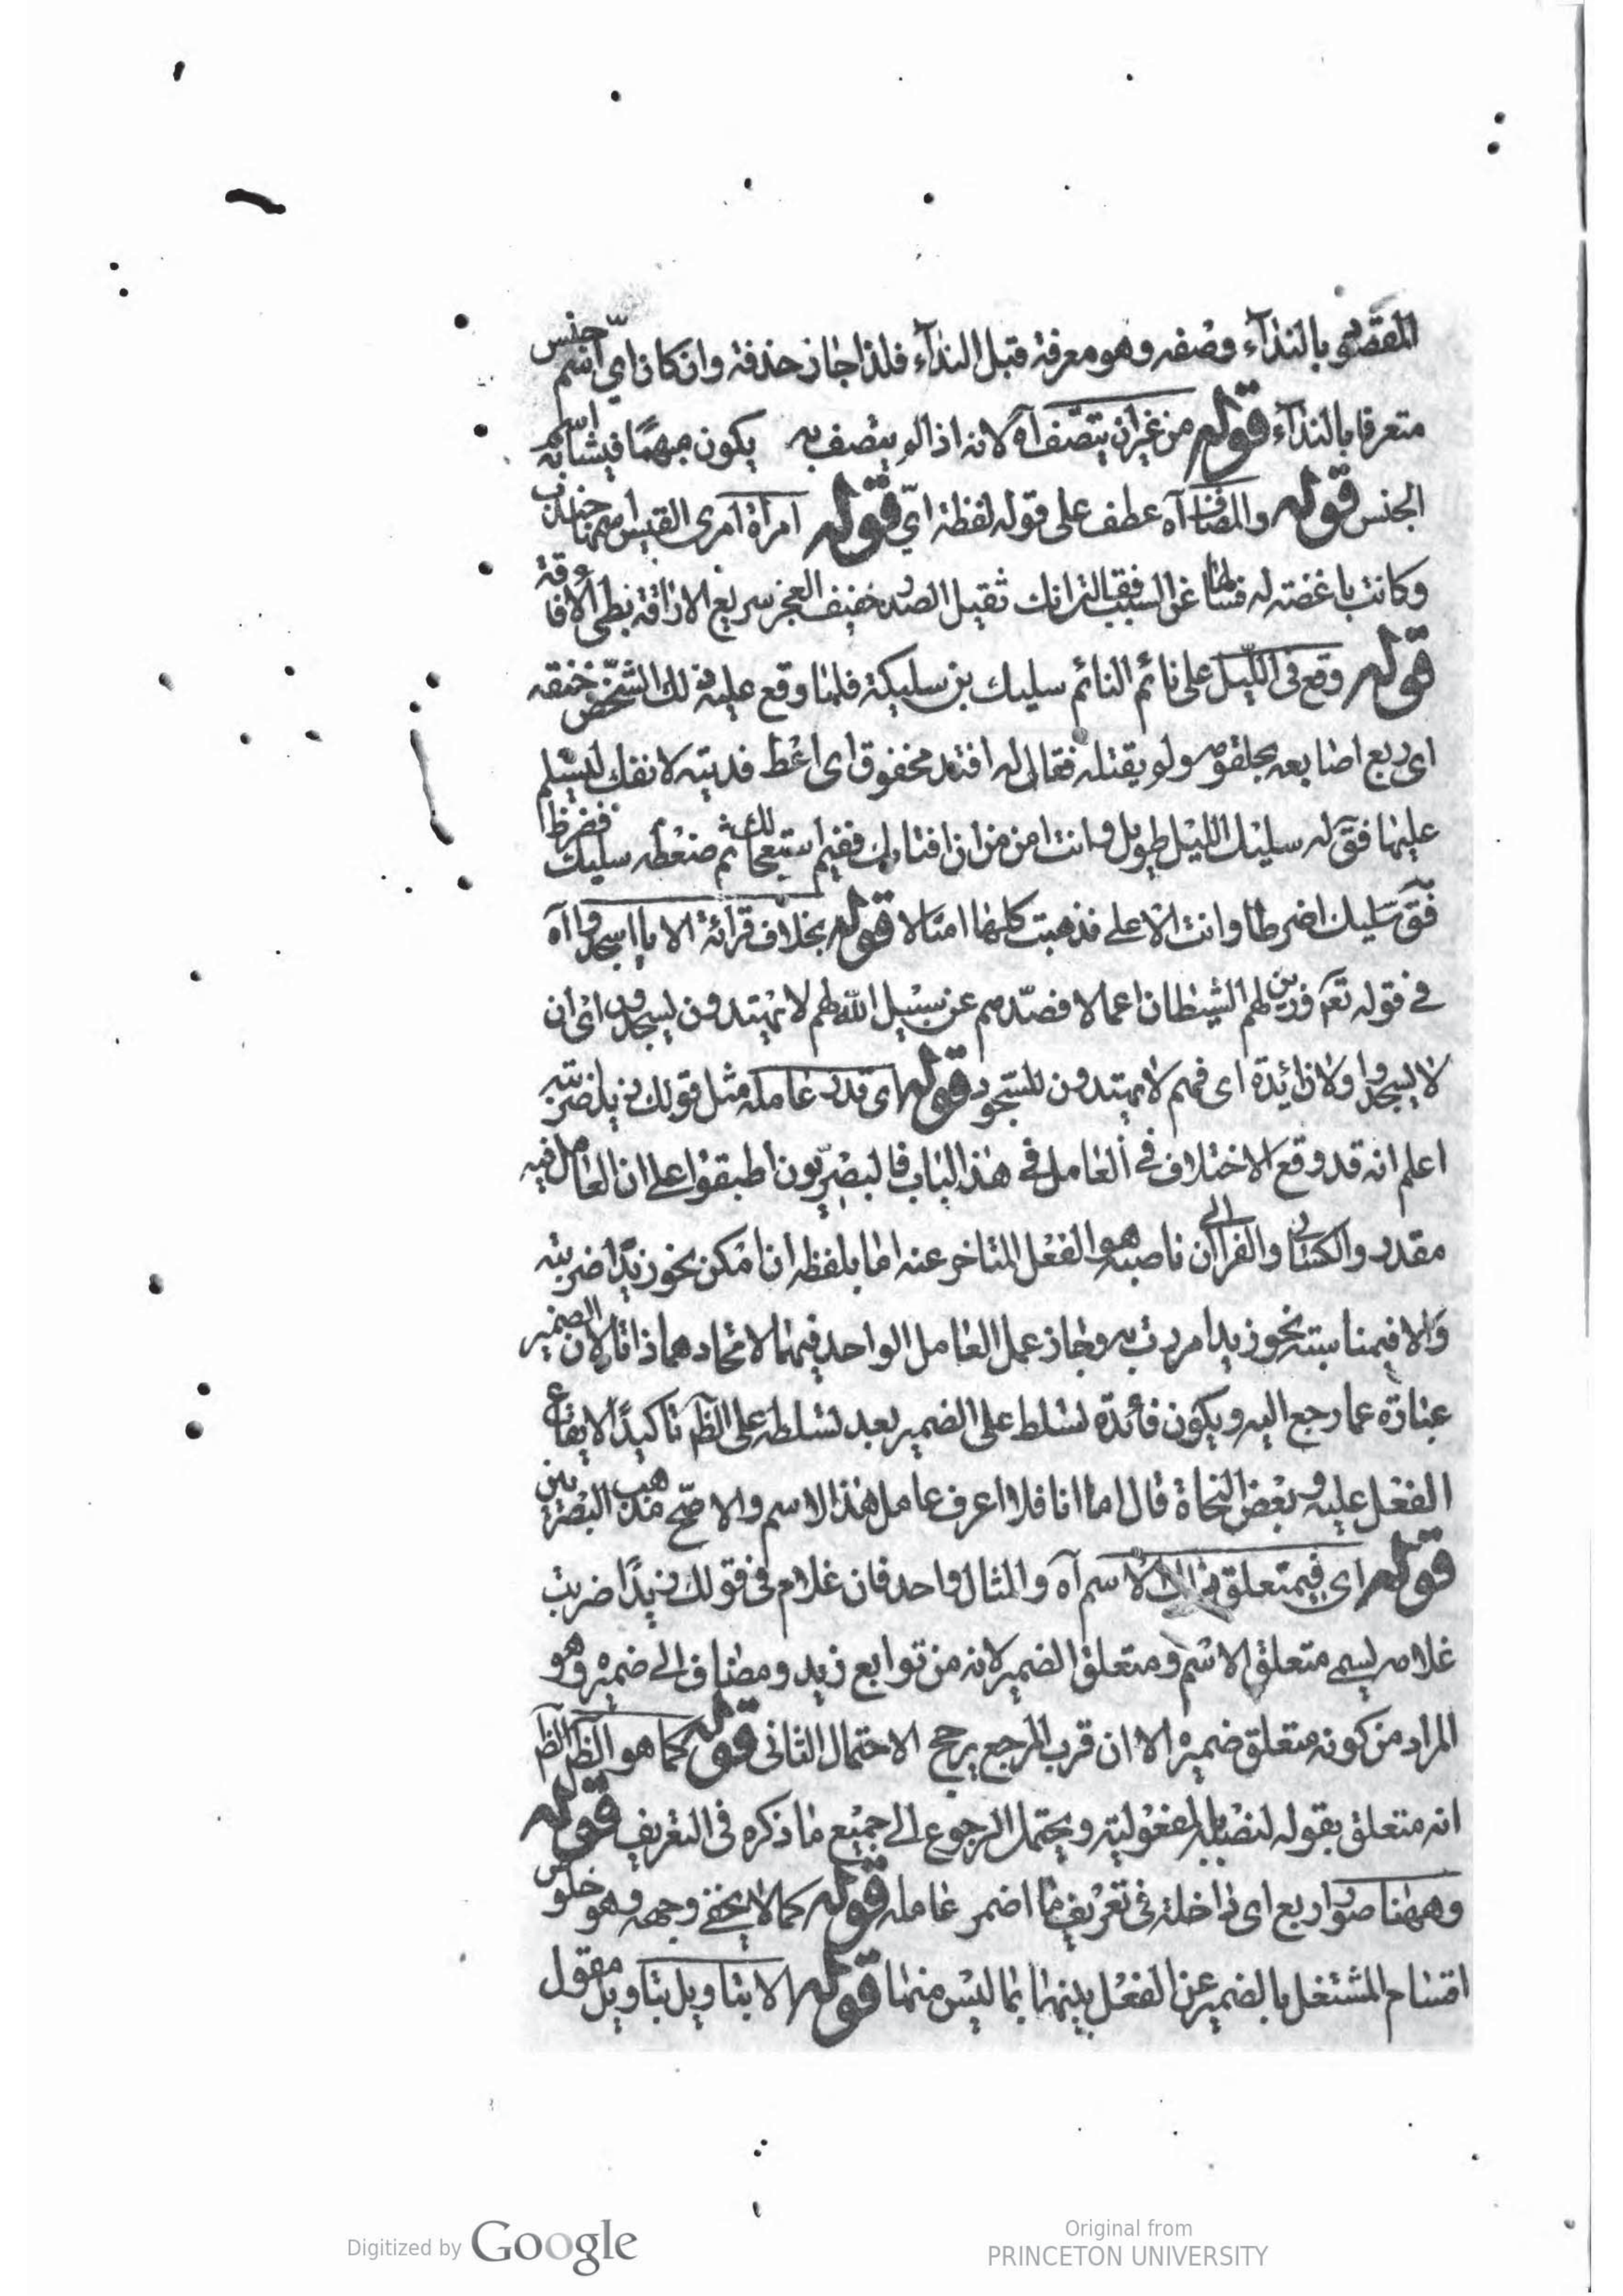 المقصود بالنداء وصفه وهو معرفة قبل النداء فلذا جاز حذفه وان كان اي اسم جنس
متعرفا بالنداء قوله من غير ان يتصف آه لانه اذا لم يتصف به يكون مبهما فيشابه اسم
الجنس قوله والمضاف آه عطف على قوله لفظة اي قوله امرأة امرئ القيس اسمها جندب
وكانت باغضته له فسالها عن السبب فقالت انك ثقيل الصدر خفيف العجز سريع الاراقة بطئ الافاقة
قوله وقع في الليل على نائم النائم سليك بن سليكة فلما وقع عليه ذلك الشخص خنقه
اي ربع اصابعه بحلقومه ولم يقتله فقال له افتد مخنوق اى اعط فديته لانفك ليسلم
عليها فق له سليك الليل طويل وانت امن من ان افتا بك ففيم استعجالك ثم ضغطه سليك فضرط
فق سليك اضرطا وانت الاعلى فذهبت كلها امثالا قوله بخلاف قرائة الا يا اسجدوا آه
في قوله تعم فزين لهم الشيطان اعمالا فصدهم عن سبيل الله لهم لا يهتدون ليسجدوا اى ان
لا يسجدوا ولا زائدة اى فهم لا يهتدون للسجود قوله اى قدر عامله مثل قولك زيد ضربته
اعلم انه قد وقع الاختلاف في العامل في هذا الباب فالبصريون اطبقوا على ان العامل فيه
مقدر والكسائى والفرا الى ان ناصبه هو الفعل المتاخر عنه اما بلفظه ان امكن نحو زيدا ضربته
والا فيمناسبته نحو زيدا مررت به وجاز عمل العامل الواحد فيهما لاتحادهما ذاتا لان الضمير
عبارة عما رجع اليه ويكون فائدة تسلط على الضمير بعد تسلطه على الظم تاكيدا لايقاع
الفعل عليه وبعض النحاة قال اما انا فلا اعرف عامل هذا الاسم والاصح مذهب البصريين
قوله اى فيمتعلق ذلك الاسم آه والمثال واحد فان غلام فى قولك زيدا ضربت
غلامه ليسمى متعلق الاسم ومتعلق الضمير لانه من توابع زيد ومضاف الى ضميره وهو
المراد من كونه متعلق ضميره الا ان قرب المرجع يرجح الاحتمال الثانى قوله كما هو الظم الظم
انه متعلق بقوله لنصبه بالمفعولية ويحتمل الرجوع الى جميع ما ذكره فى التعريف قوله
وههنا صور اربع اى داخلة فى تعريف ما اضمر عامله قوله كما لا يخفى وجهه وهو خلو
اقسام المشتغل بالضمير عن الفعل بينهما بما ليس منهما قوله الا بتاويل بتاويل مقول
Digitized by Google
Original from
PRINCETON UNIVERSITY